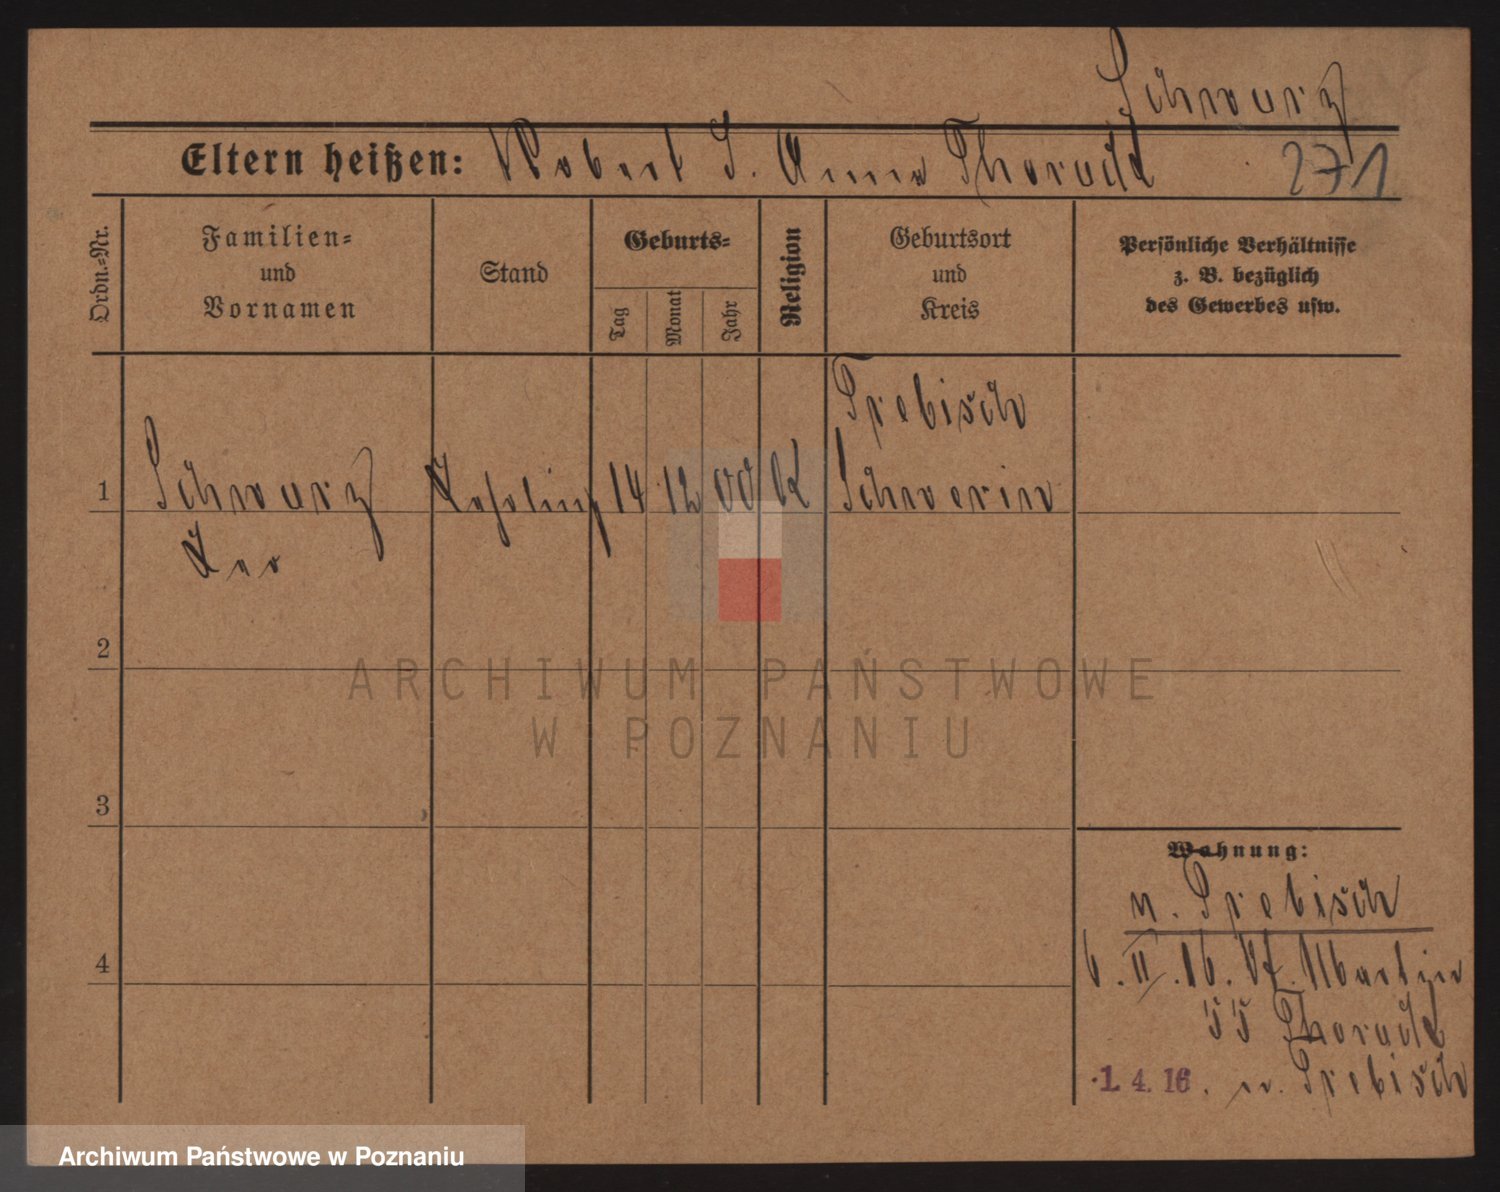 Schwarz
Eltern heißen: Robert S. Anna Thorack
271
Ordn.-Nr.
Familien-
und
Vornamen
Stand
Geburts-
Tag
Monat
Jahr
Religion
Geburtsort
und
Kreis
Persönliche Verhältnisse
z. B. bezüglich
des Gewerbes usw.
Trebisch
1 Schwarz Lehrling 14 12 00 K Schwerin
Leo
2
3
4
ARCHIWUM PAŃSTWOWE
W POZNANIU
Wohnung:
n. Trebisch
6. II. 16. St. Martin
55 Thorack
1. 4. 16. n. Trebisch
Archiwum Państwowe w Poznaniu